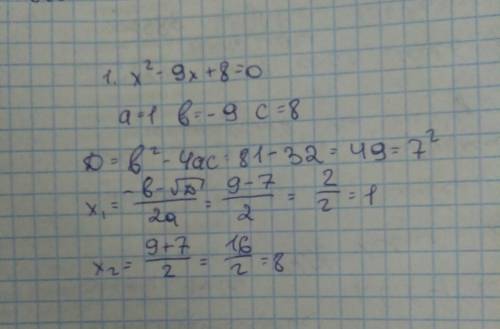 1. x² - 9x + 8 = 0
a = 1 в = -9 c = 8
D = в² - 4ac = 81 - 32 = 49 = 7²
x₁ = (-в - √D)/2a = (9 - 7)/2 = 2/2 = 1
x₂ = (9 + 7)/2 = 16/2 = 8